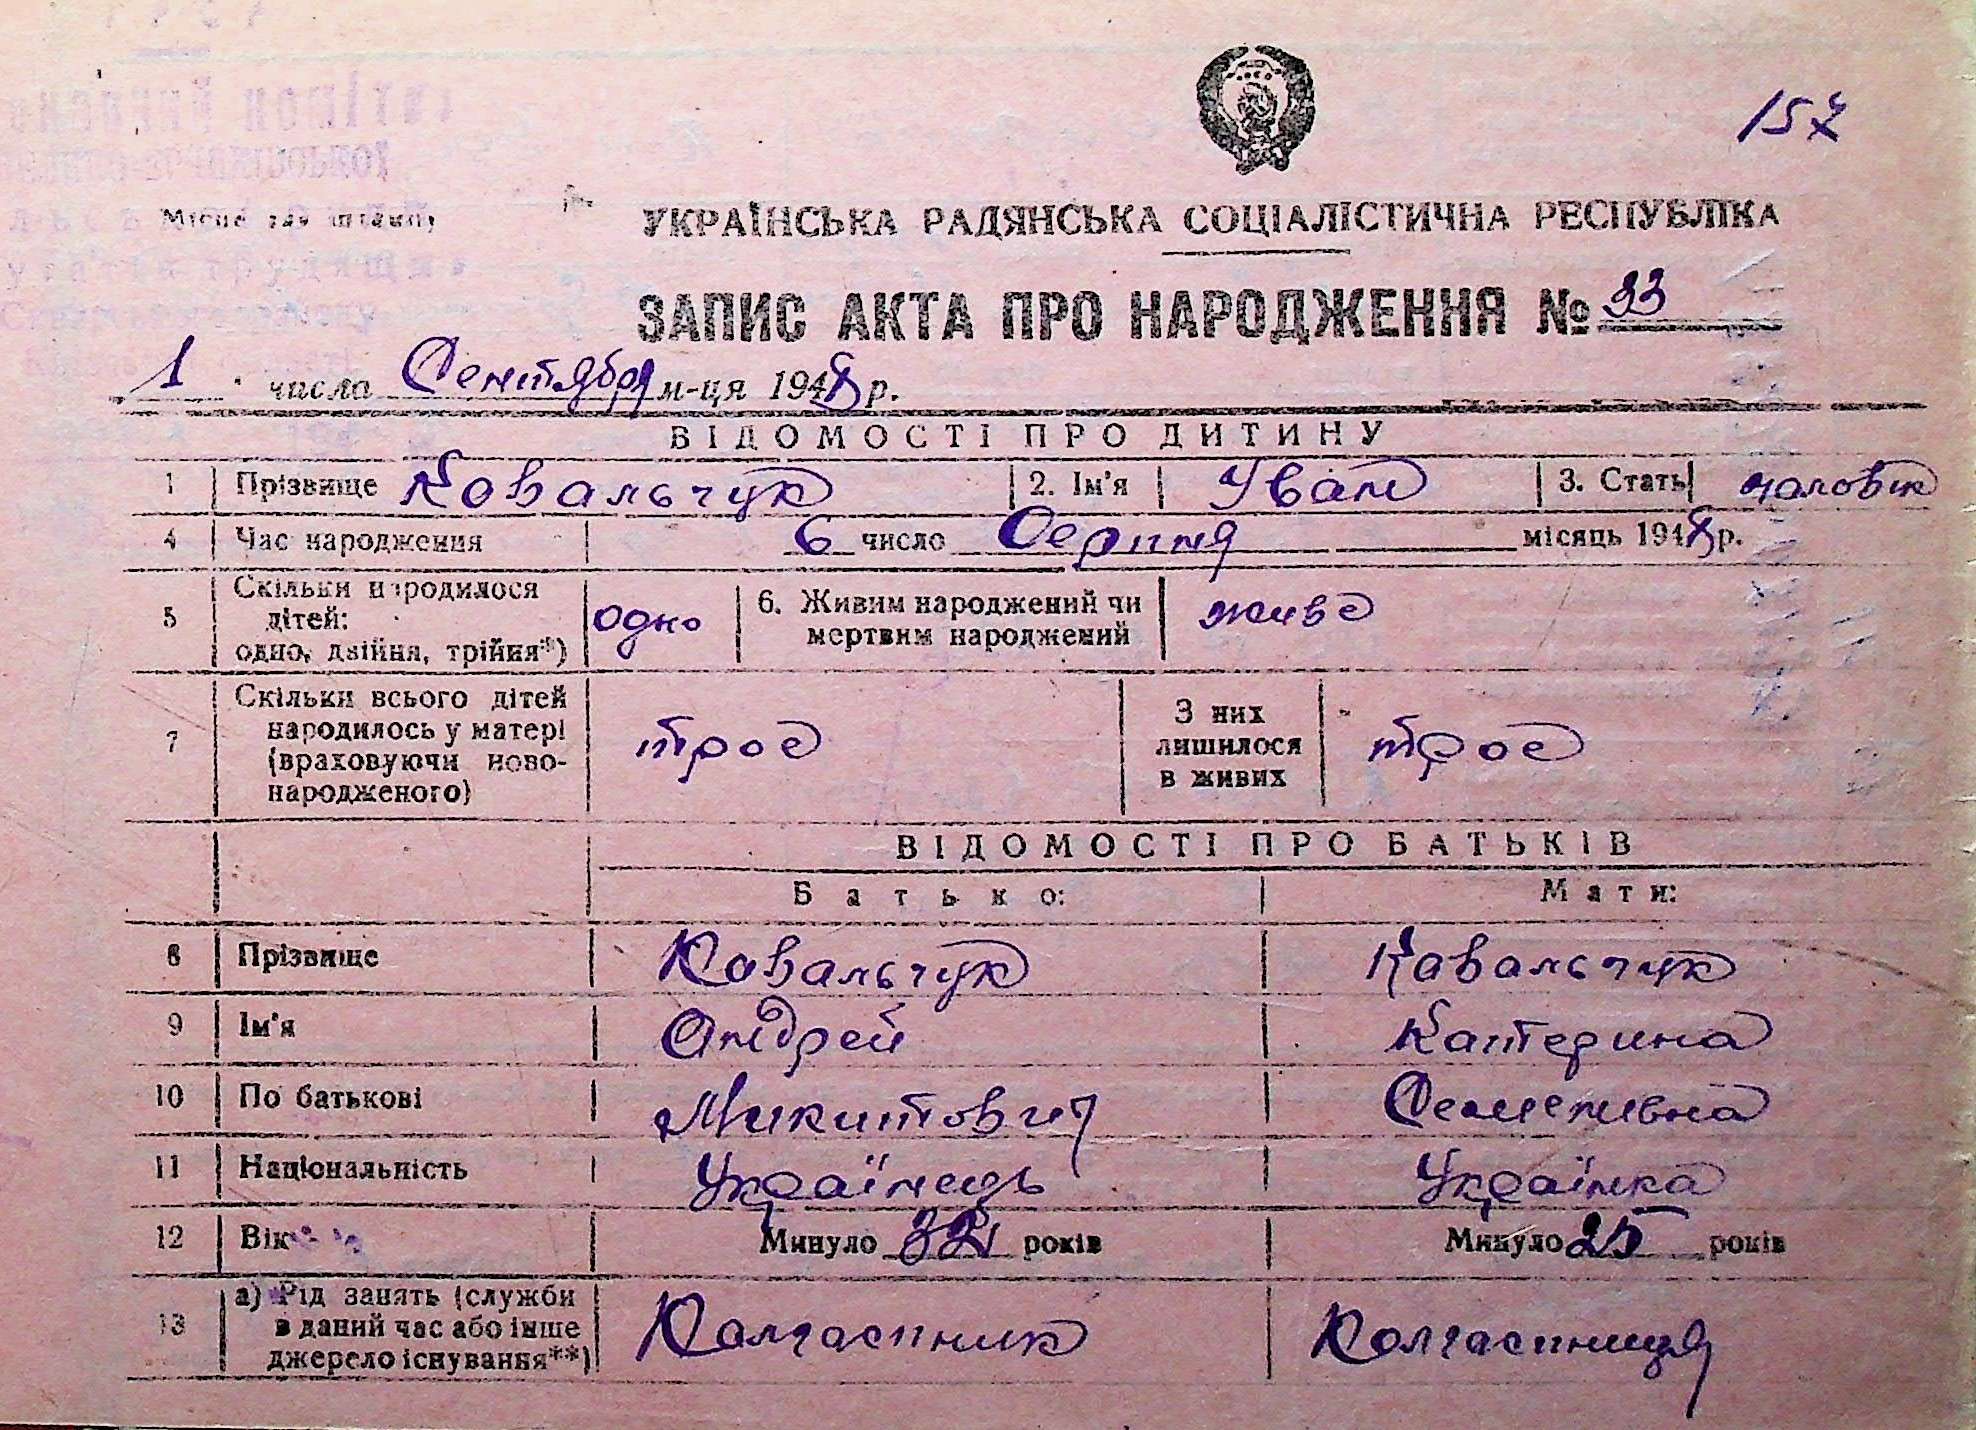 157
Місце для штампу
УКРАЇНСЬКА РАДЯНСЬКА СОЦІАЛІСТИЧНА РЕСПУБЛІКА
ЗАПИС АКТА ПРО НАРОДЖЕННЯ № 33
1 числа Сентября м-ця 1948 р.
ВІДОМОСТІ ПРО ДИТИНУ
1 Прізвище Ковальчук 2. Ім'я Уван 3. Стать чоловік
4 Час народження 6 число Серпня місяць 1948 р.
5 Скільки народилося дітей: одно, двійня, трійня*) одно 6. Живим народжений чи мертвим народжений живе
7 Скільки всього дітей народилось у матері (враховуючи новонародженого) троє З них лишилося в живих троє
ВІДОМОСТІ ПРО БАТЬКІВ
Батько: Мати:
8 Прізвище Ковальчук Кавальчук
9 Ім'я Андрей Катерина
10 По батькові Микитович Семенивна
11 Національність Українець Українка
12 Вік Минуло 32 років Минуло 25 років
13 а) Рід занять (служби в даний час або інше джерело існування**) Колгоспник Колгоспниця